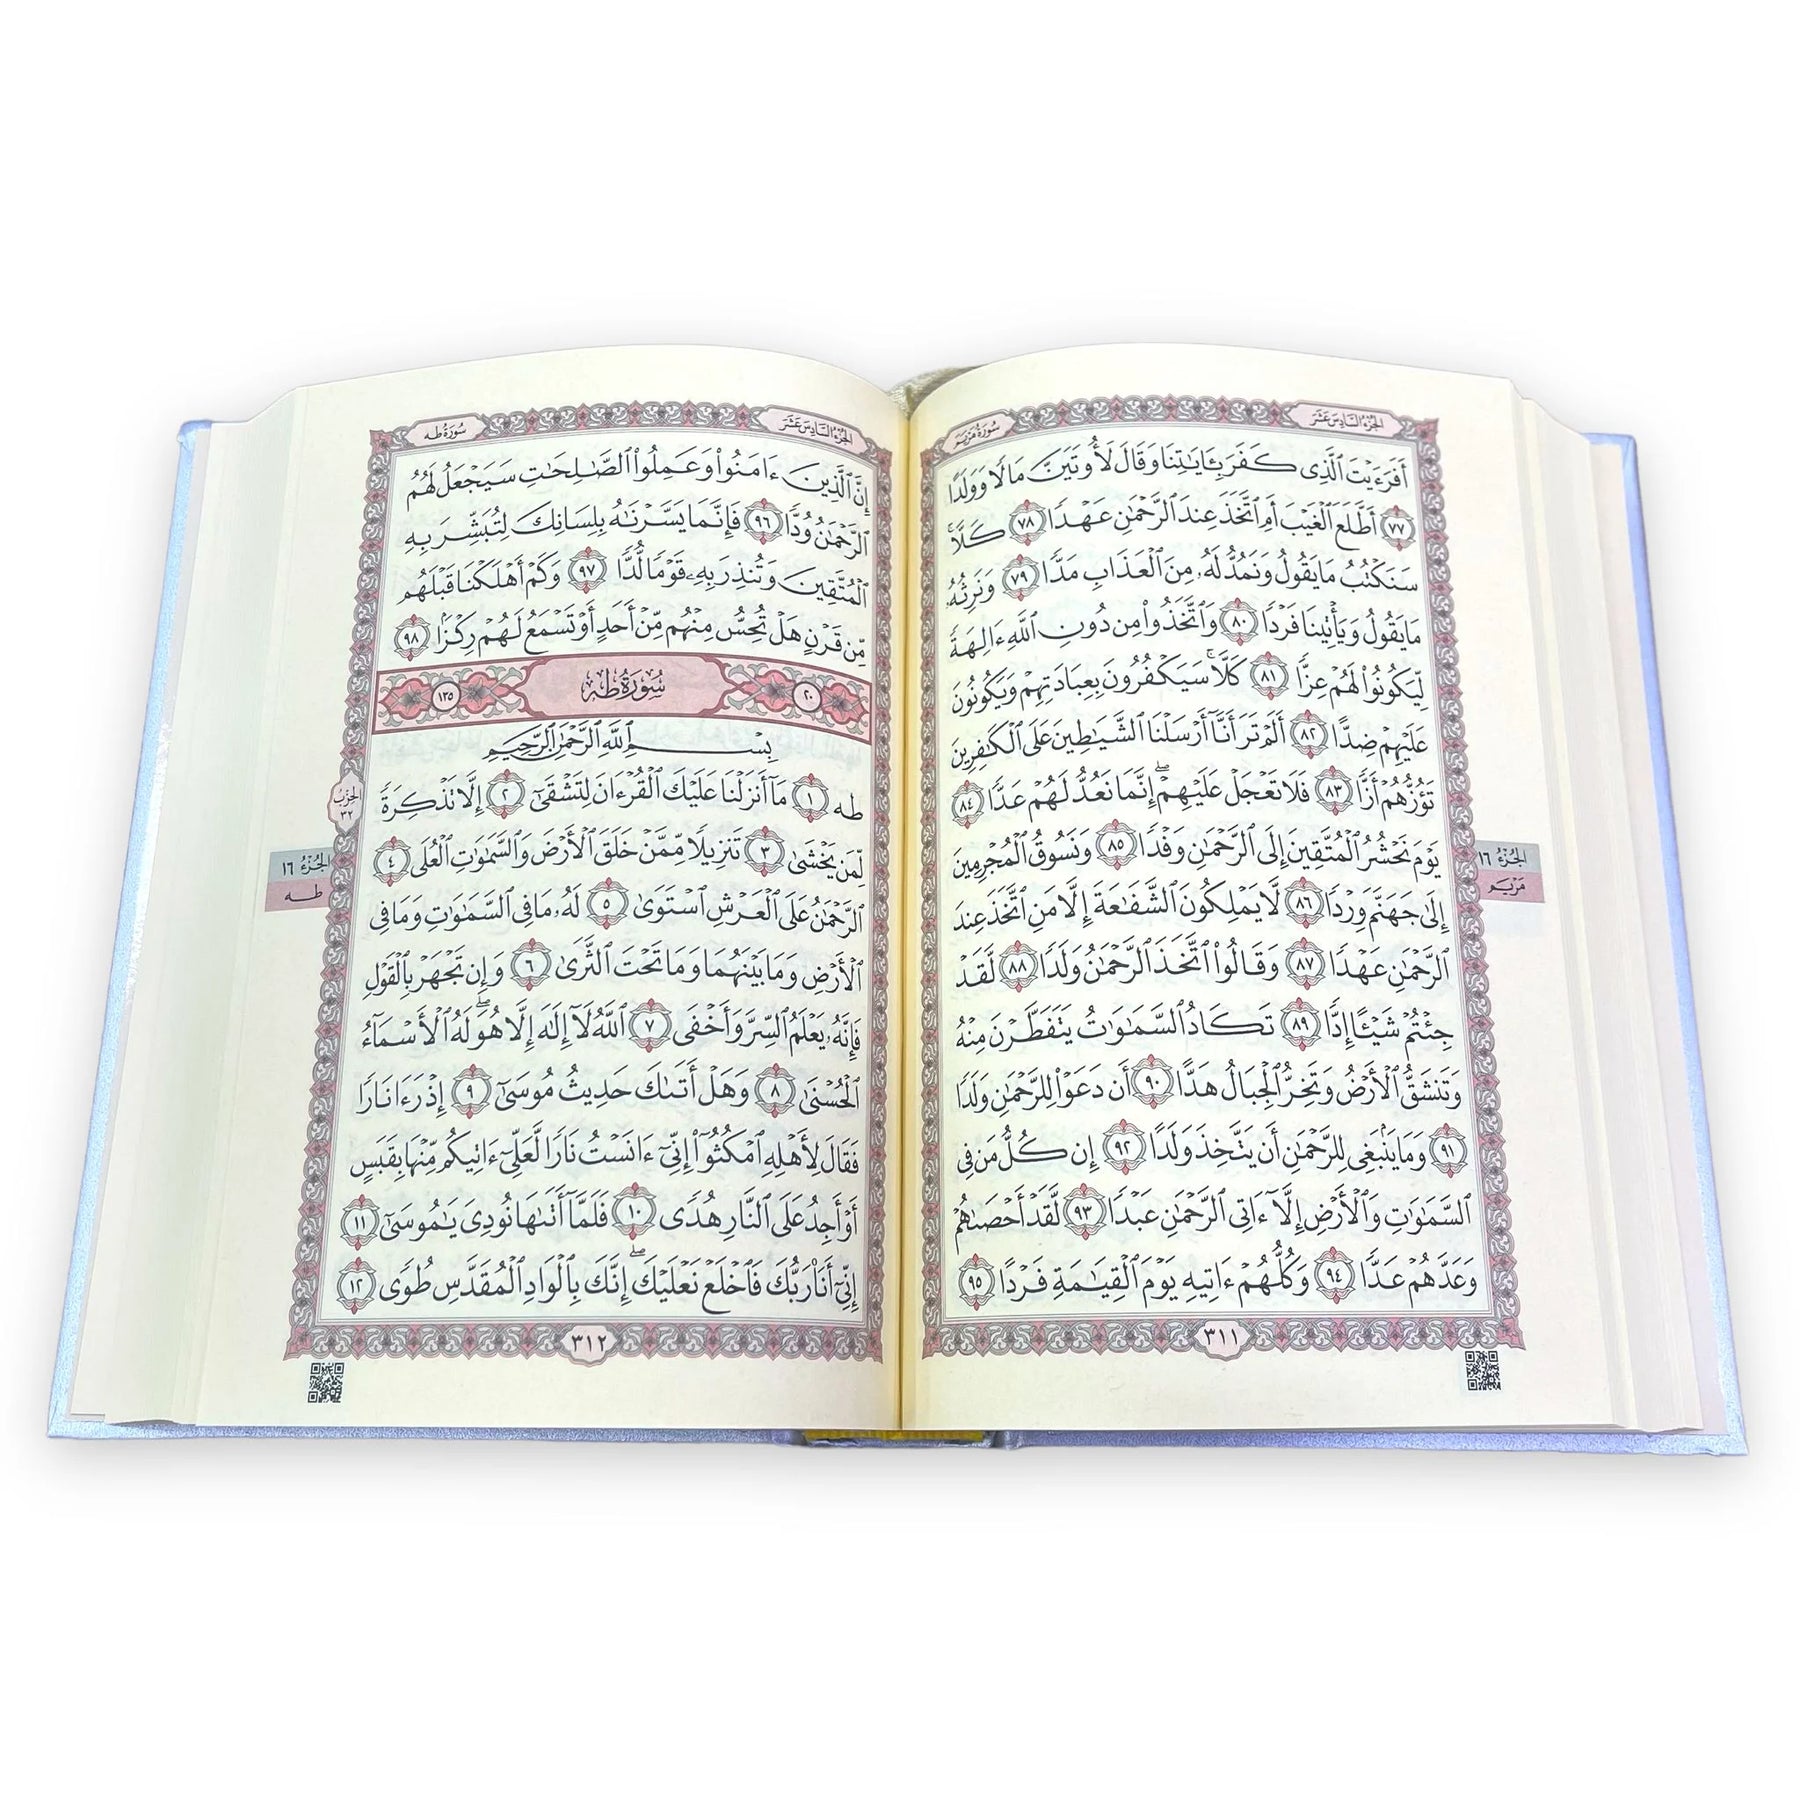 سُورَةُ مَرْيَم
الجُزْءُ السَّادِسَ عَشَرَ
أَفَرَءَيْتَ ٱلَّذِى كَفَرَ بِـَٔايَـٰتِنَا وَقَالَ لَأُوتَيَنَّ مَالًا وَوَلَدًا
﴿٧٧﴾ أَطَّلَعَ ٱلْغَيْبَ أَمِ ٱتَّخَذَ عِندَ ٱلرَّحْمَـٰنِ عَهْدًا ﴿٧٨﴾ كَلَّا ۚ
سَنَكْتُبُ مَا يَقُولُ وَنَمُدُّ لَهُۥ مِنَ ٱلْعَذَابِ مَدًّا ﴿٧٩﴾ وَنَرِثُهُۥ
مَا يَقُولُ وَيَأْتِينَا فَرْدًا ﴿٨٠﴾ وَٱتَّخَذُوا۟ مِن دُونِ ٱللَّهِ ءَالِهَةً
لِّيَكُونُوا۟ لَهُمْ عِزًّا ﴿٨١﴾ كَلَّا ۚ سَيَكْفُرُونَ بِعِبَادَتِهِمْ وَيَكُونُونَ
عَلَيْهِمْ ضِدًّا ﴿٨٢﴾ أَلَمْ تَرَ أَنَّآ أَرْسَلْنَا ٱلشَّيَـٰطِينَ عَلَى ٱلْكَـٰفِرِينَ
تَؤُزُّهُمْ أَزًّا ﴿٨٣﴾ فَلَا تَعْجَلْ عَلَيْهِمْ ۖ إِنَّمَا نَعُدُّ لَهُمْ عَدًّا ﴿٨٤﴾
يَوْمَ نَحْشُرُ ٱلْمُتَّقِينَ إِلَى ٱلرَّحْمَـٰنِ وَفْدًا ﴿٨٥﴾ وَنَسُوقُ ٱلْمُجْرِمِينَ
إِلَىٰ جَهَنَّمَ وِرْدًا ﴿٨٦﴾ لَّا يَمْلِكُونَ ٱلشَّفَـٰعَةَ إِلَّا مَنِ ٱتَّخَذَ عِندَ
ٱلرَّحْمَـٰنِ عَهْدًا ﴿٨٧﴾ وَقَالُوا۟ ٱتَّخَذَ ٱلرَّحْمَـٰنُ وَلَدًا ﴿٨٨﴾ لَّقَدْ
جِئْتُمْ شَيْـًٔا إِدًّا ﴿٨٩﴾ تَكَادُ ٱلسَّمَـٰوَٰتُ يَتَفَطَّرْنَ مِنْهُ
وَتَنشَقُّ ٱلْأَرْضُ وَتَخِرُّ ٱلْجِبَالُ هَدًّا ﴿٩٠﴾ أَن دَعَوْا۟ لِلرَّحْمَـٰنِ وَلَدًا
﴿٩١﴾ وَمَا يَنۢبَغِى لِلرَّحْمَـٰنِ أَن يَتَّخِذَ وَلَدًا ﴿٩٢﴾ إِن كُلُّ مَن فِى
ٱلسَّمَـٰوَٰتِ وَٱلْأَرْضِ إِلَّآ ءَاتِى ٱلرَّحْمَـٰنِ عَبْدًا ﴿٩٣﴾ لَّقَدْ أَحْصَىٰهُمْ
وَعَدَّهُمْ عَدًّا ﴿٩٤﴾ وَكُلُّهُمْ ءَاتِيهِ يَوْمَ ٱلْقِيَـٰمَةِ فَرْدًا ﴿٩٥﴾
٣١١
الجُزْءُ ١٦
مَرْيَم
سُورَةُ طه
الجُزْءُ السَّادِسَ عَشَرَ
إِنَّ ٱلَّذِينَ ءَامَنُوا۟ وَعَمِلُوا۟ ٱلصَّـٰلِحَـٰتِ سَيَجْعَلُ لَهُمُ
ٱلرَّحْمَـٰنُ وُدًّا ﴿٩٦﴾ فَإِنَّمَا يَسَّرْنَـٰهُ بِلِسَانِكَ لِتُبَشِّرَ بِهِ
ٱلْمُتَّقِينَ وَتُنذِرَ بِهِۦ قَوْمًا لُّدًّا ﴿٩٧﴾ وَكَمْ أَهْلَكْنَا قَبْلَهُم
مِّن قَرْنٍ هَلْ تُحِسُّ مِنْهُم مِّنْ أَحَدٍ أَوْ تَسْمَعُ لَهُمْ رِكْزًۢا ﴿٩٨﴾
٢٠ سُورَةُ طه ١٣٥
بِسْمِ ٱللَّهِ ٱلرَّحْمَـٰنِ ٱلرَّحِيمِ
طه ﴿١﴾ مَآ أَنزَلْنَا عَلَيْكَ ٱلْقُرْءَانَ لِتَشْقَىٰٓ ﴿٢﴾ إِلَّا تَذْكِرَةً
لِّمَن يَخْشَىٰ ﴿٣﴾ تَنزِيلًا مِّمَّنْ خَلَقَ ٱلْأَرْضَ وَٱلسَّمَـٰوَٰتِ ٱلْعُلَى ﴿٤﴾
ٱلرَّحْمَـٰنُ عَلَى ٱلْعَرْشِ ٱسْتَوَىٰ ﴿٥﴾ لَهُۥ مَا فِى ٱلسَّمَـٰوَٰتِ وَمَا فِى
ٱلْأَرْضِ وَمَا بَيْنَهُمَا وَمَا تَحْتَ ٱلثَّرَىٰ ﴿٦﴾ وَإِن تَجْهَرْ بِٱلْقَوْلِ
فَإِنَّهُۥ يَعْلَمُ ٱلسِّرَّ وَأَخْفَى ﴿٧﴾ ٱللَّهُ لَآ إِلَـٰهَ إِلَّا هُوَ ۖ لَهُ ٱلْأَسْمَآءُ
ٱلْحُسْنَىٰ ﴿٨﴾ وَهَلْ أَتَىٰكَ حَدِيثُ مُوسَىٰٓ ﴿٩﴾ إِذْ رَءَا نَارًا
فَقَالَ لِأَهْلِهِ ٱمْكُثُوٓا۟ إِنِّىٓ ءَانَسْتُ نَارًا لَّعَلِّىٓ ءَاتِيكُم مِّنْهَا بِقَبَسٍ
أَوْ أَجِدُ عَلَى ٱلنَّارِ هُدًى ﴿١٠﴾ فَلَمَّآ أَتَىٰهَا نُودِىَ يَـٰمُوسَىٰٓ ﴿١١﴾
إِنِّىٓ أَنَا۠ رَبُّكَ فَٱخْلَعْ نَعْلَيْكَ ۖ إِنَّكَ بِٱلْوَادِ ٱلْمُقَدَّسِ طُوًى ﴿١٢﴾
٣١٢
الحِزْبُ
٣٢
الجُزْءُ ١٦
طه